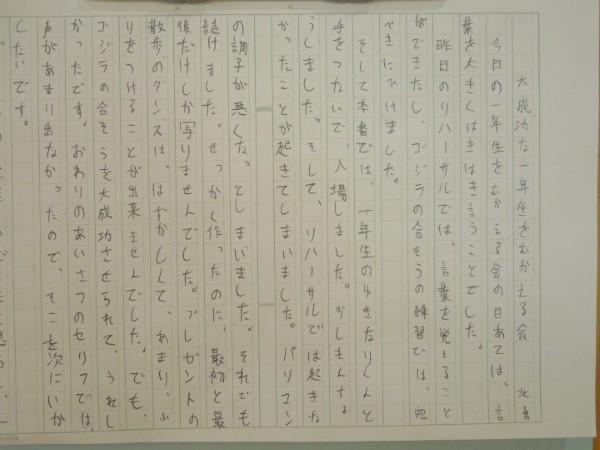 大成功な一年生をむかえる会　北
今日の一年生をむかえる会の目あては、言
葉を大きくはきはき言うことでした。
昨日のリハーサルでは、言葉を覚えること
ができたし、ゴジラの合そうの練習では、完
ぺきにひけました。
そして本番では、一年生のゆきなりくんと
手をつないで、入場しました。少しきんちょ
うしました。そして、リハーサルでは起きな
かったことが起きてしまいました。パソコン
の調子が悪くなってしまいました。それでも
続けました。せっかく作ったのに、最初と最
後だけしか写りませんでした。プレゼントの
散歩のダンスは、はずかしくて、あまり、ふ
りをつけることが出来ませんでした。でも、
ゴジラの合そうを大成功させられて、うれし
かったです。おわりのあいさつのセリフでは、
声があまり出なかったので、そこを次にいか
したいです。